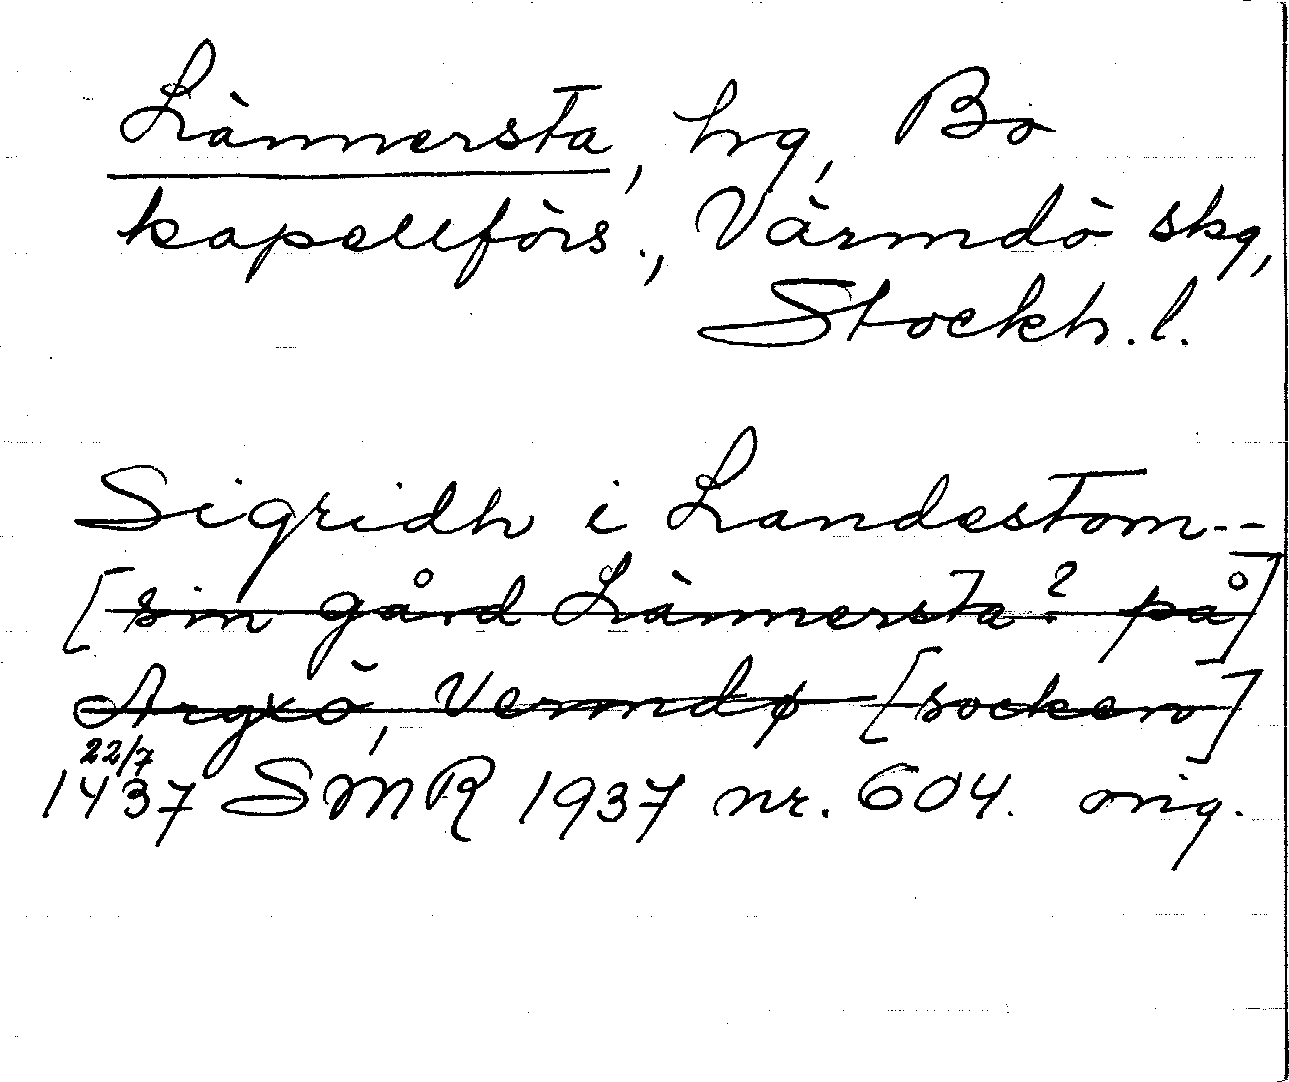 Lännersta, hg, Bo
kapellförs., Värmdö skg,
Stockh. l.
Sigridh i Landestom--
[sin gård Lännersta? på]
Argxö, Vermdø [socken]
22/7
1437 SMR 1937 nr. 604. orig.